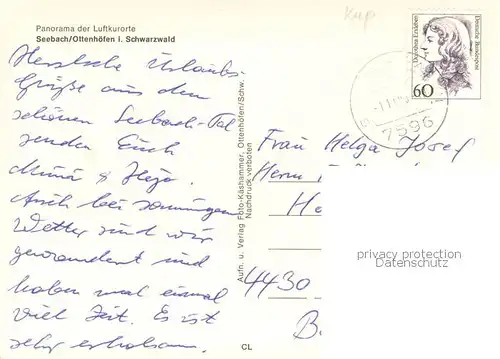 Panorama der Luftkurorte
Seebach/Ottenhöfen i. Schwarzwald
Kup
Herzliche Urlaubs-
Grüße aus dem
schönen Seebach-Tal
senden Euch
&
Auch bei sonnigem
Wetter sind wir
gewandert und
haben mal einmal
viel Zeit. Es ist
sehr erholsam.
CL
Aufn. u. Verlag Foto-Käshammer, Ottenhöfen/Schw.
Nachdruck verboten
Dorothea Erxleben
Deutsche Bundespost
60
7596
Frau Helga Josef
Herrn
He
4430
B
privacy protection
Datenschutz